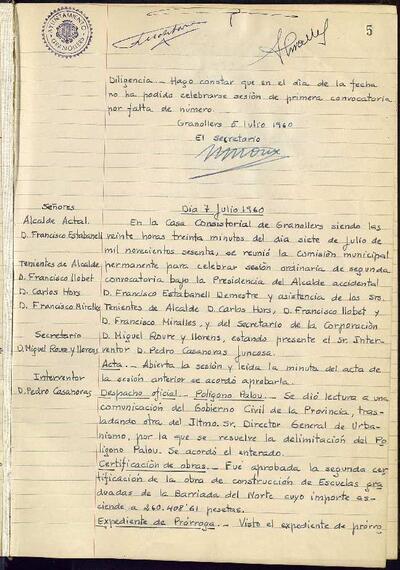 AYUNTAMIENTO
GRANOLLERS
5
Diligencia.- Hago constar que en el día de la fecha
no ha podido celebrarse sesión de primera convocatoria
por falta de número.
Granollers 5 Julio 1960
El secretario
Señores
Alcalde Actal.
D. Francisco Estabanell
Tenientes de Alcalde
D. Francisco Llobet
D. Carlos Hors
D. Francisco Miralles
Secretario
D. Miguel Roure y Llorens
Interventor
D. Pedro Casanovas
Día 7 Julio 1960
En la Casa Consistorial de Granollers siendo las
veinte horas treinta minutos del día siete de Julio de
mil novecientos sesenta, se reunió la Comisión municipal
permanente para celebrar sesión ordinaria de segunda
convocatoria bajo la Presidencia del Alcalde accidental
D. Francisco Estabanell Demestre y asistencia de los Srs.
Tenientes de Alcalde D. Carlos Hors, D. Francisco Llobet y
D. Francisco Miralles, y del Secretario de la Corporación
D. Miguel Roure y Llorens, estando presente el Sr. Inter-
ventor D. Pedro Casanovas Juncosa.
Acta.- Abierta la sesión y leída la minuta del acta de
la sesión anterior se acordó aprobarla.
Despacho oficial.- Polígono Palou.- Se dió lectura a una
comunicación del Gobierno Civil de la Provincia, tras-
ladando otra del Iltmo. Sr. Director General de Urba-
nismo, por la que se resuelve la delimitación del Po-
lígono Palou. Se acordó el enterado.
Certificación de obras.- Fue aprobada la segunda cer-
tificación de la obra de construcción de Escuelas gra-
duadas de la Barriada del Norte cuyo importe as-
ciende a 260.408'61 pesetas.
Expediente de Prórroga.- Visto el expediente de prórro-